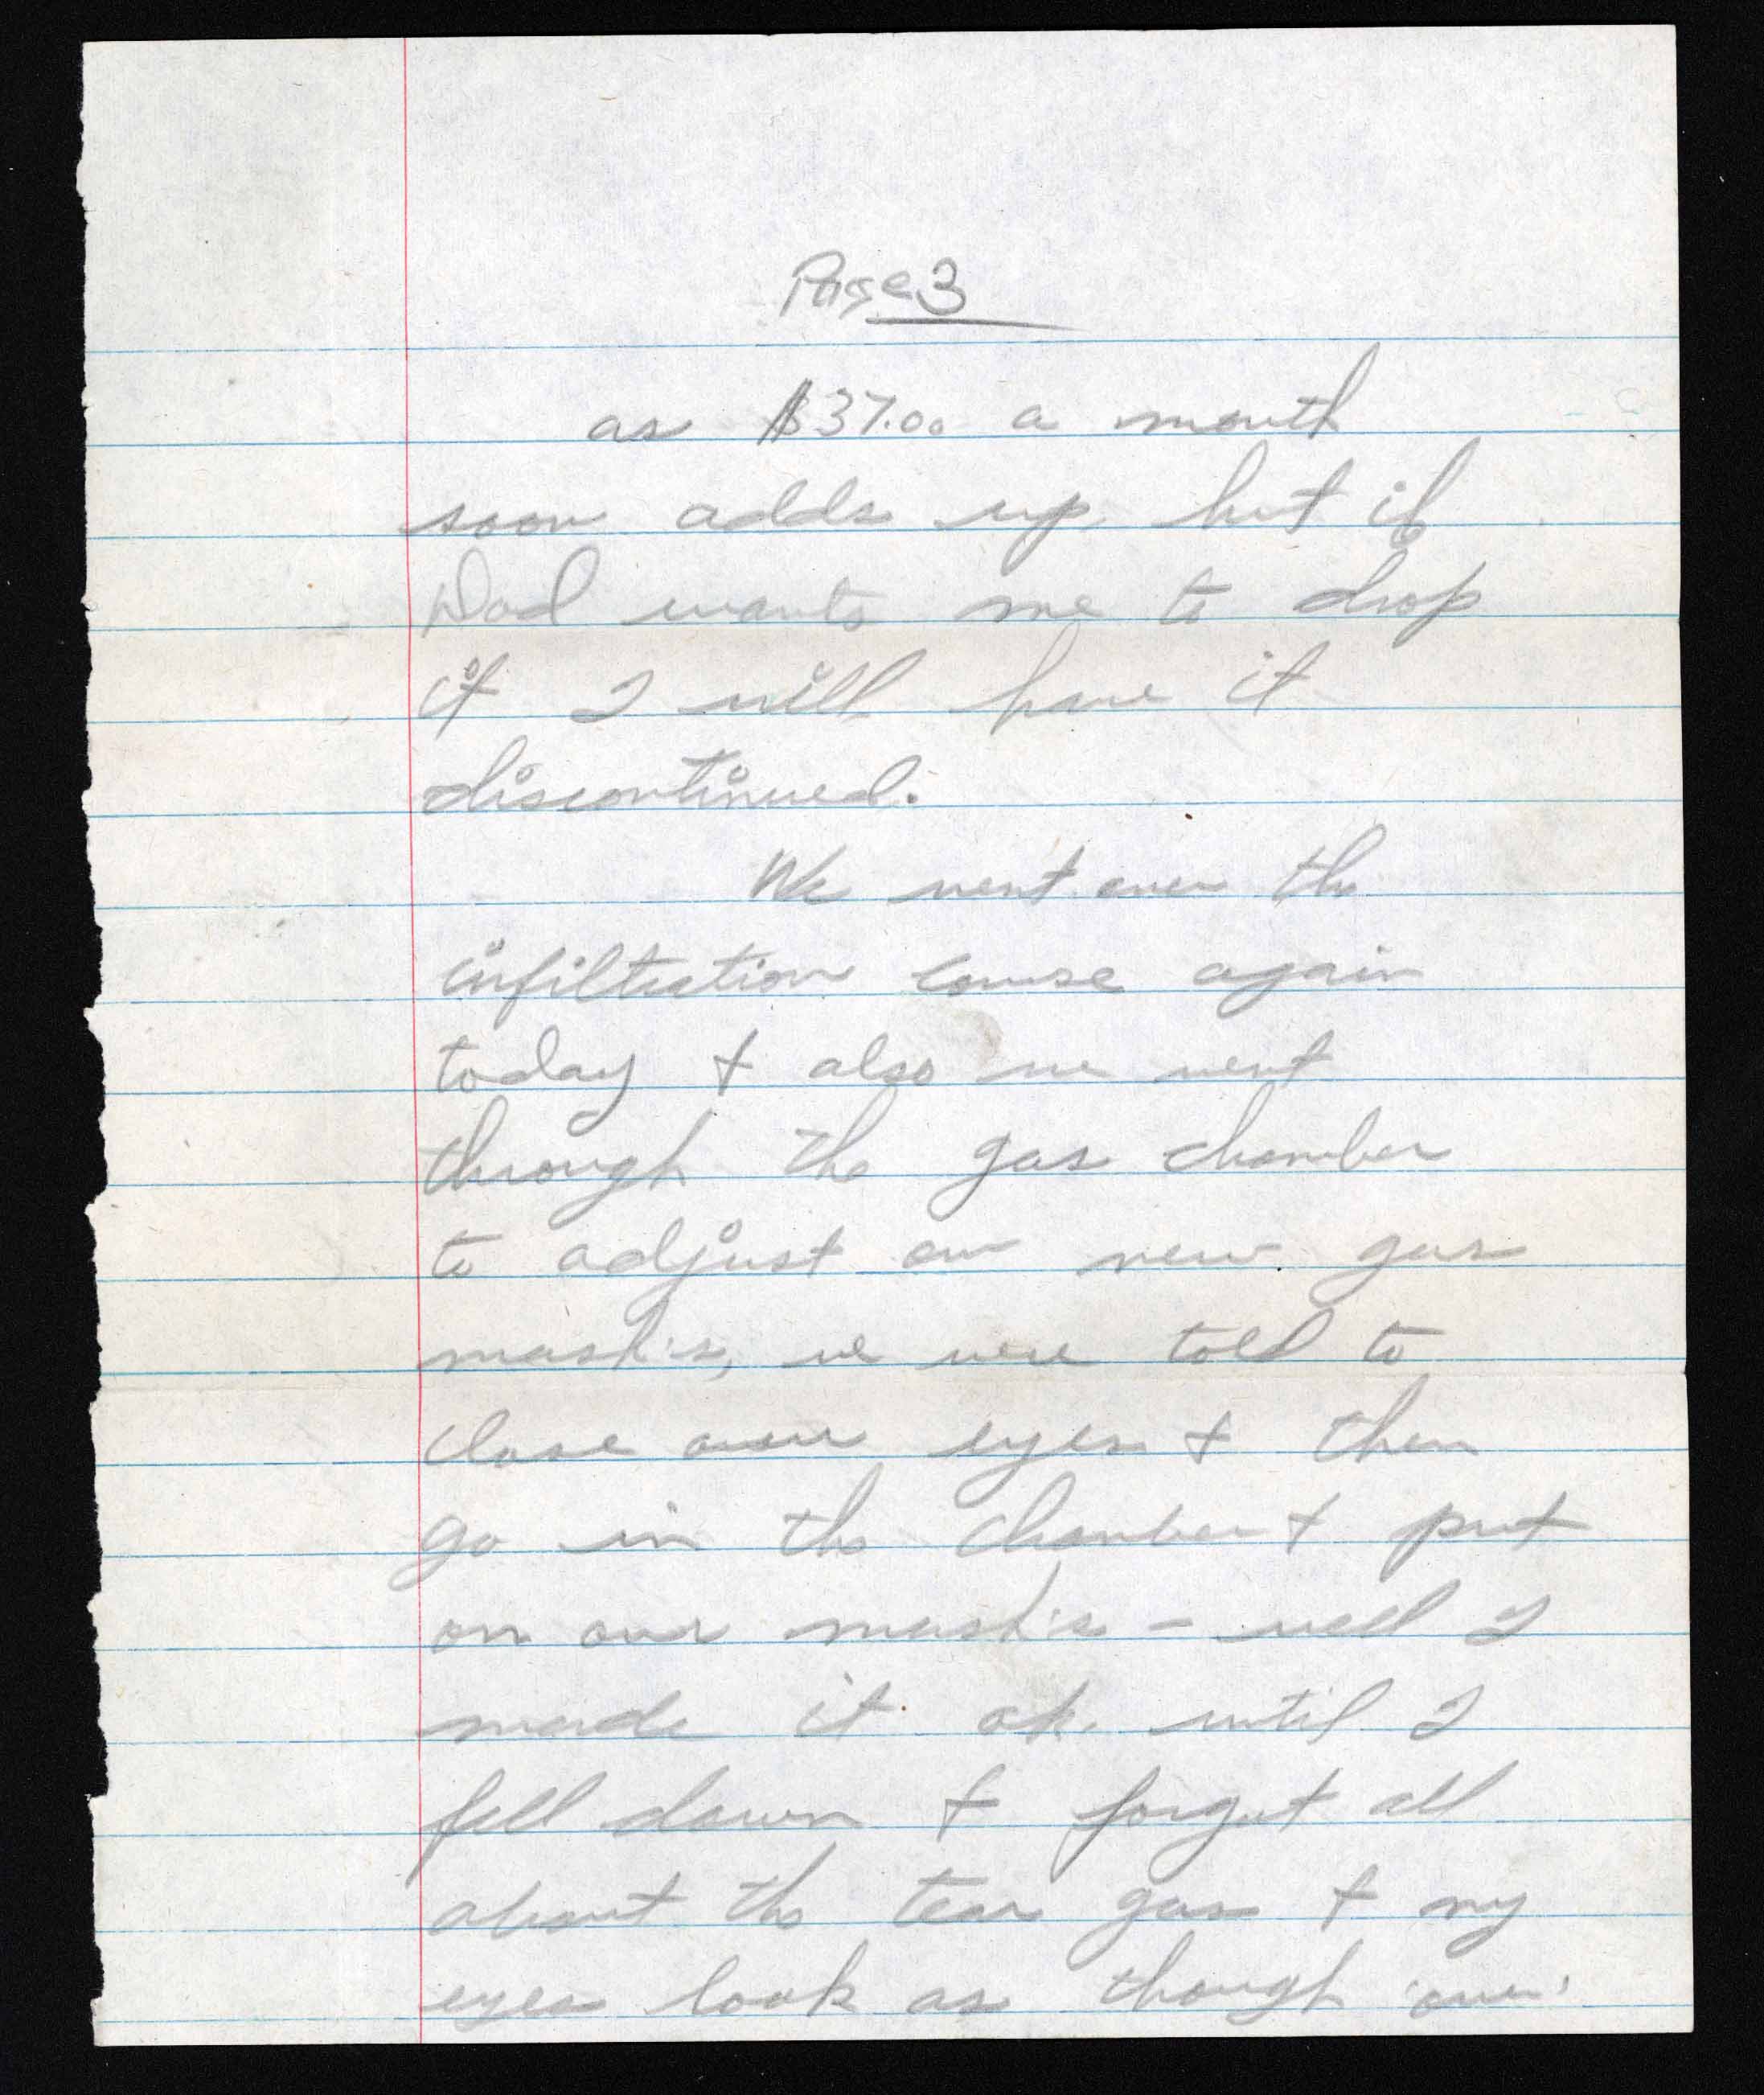 Page 3
as $37.00 a month
soon adds up but if
Dad wants me to drop
it I will have it
discontinued.
We went over the
infiltration course again
today + also we went
through the gas chamber
to adjust our new gas
mask's, we were told to
close our eyes + then
go in the chamber + put
on our mask's - well I
made it ok. until I
fell down + forgot all
about the tear gas + my
eyes look as though 'over'